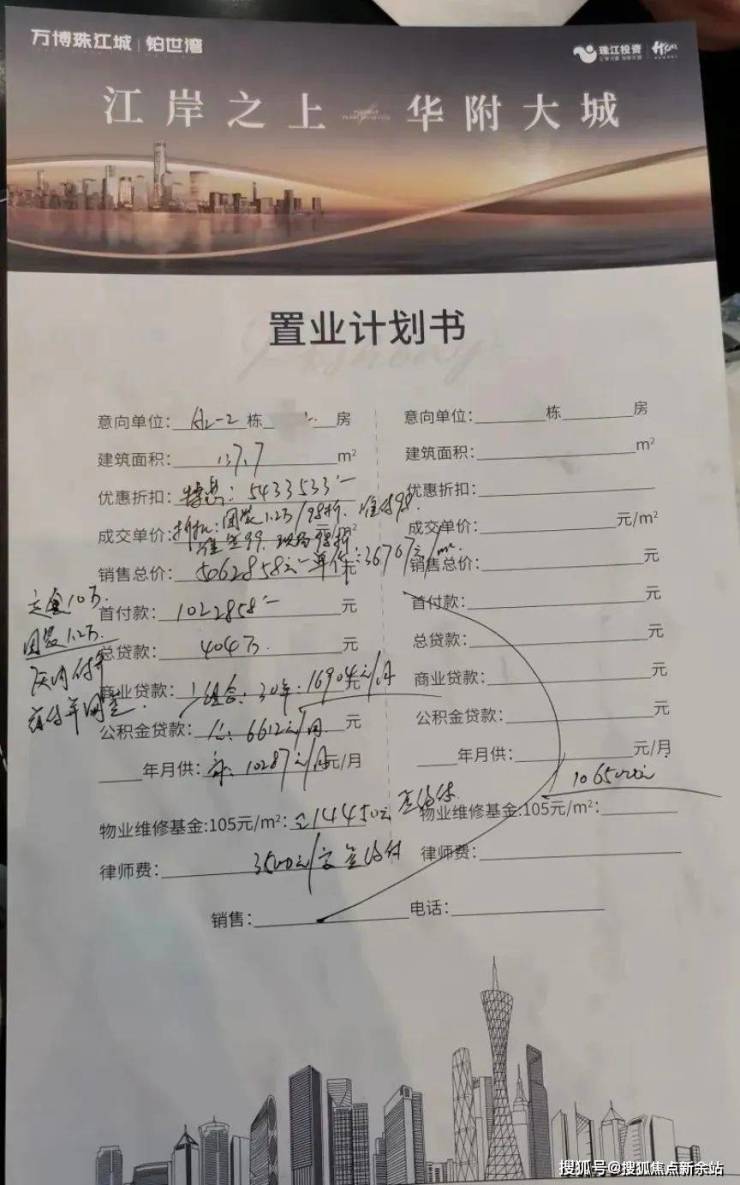 万博珠江城 | 铂世湾
珠江投资
江岸之上 华附大城
置业计划书
意向单位: -2 栋 房
建筑面积: 137.7 m²
优惠折扣: 特惠: 5433533
成交单价: 折扣: 团装1.2万/98折. 准签99. 元/m²
销售总价: 5062858元 单价: 36767元/m². 元
首付款: 1022858 元
总贷款: 404万. 元
商业贷款: 组合: 30年: 16904元/月
公积金贷款: 公: 6612元/月 元
年月供: 商: 10287元/月 元/月
物业维修基金:105元/m²: 14450元
律师费: 3500元/
销售:
定金10万.
团装1.2万.
意向单位: 栋 房
建筑面积: m²
优惠折扣:
成交单价: 元/m²
销售总价: 元
首付款: 元
总贷款: 元
商业贷款: 元
公积金贷款: 元
年月供: 元/月
物业维修基金:105元/m²:
律师费:
电话:
搜狐号@搜狐焦点新余站